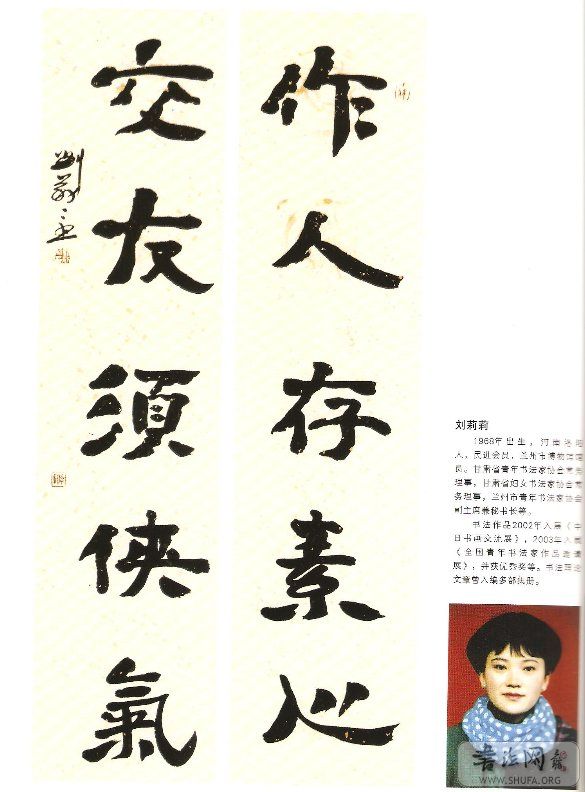 作人存素心
交友須俠氣
刘莉莉
1968年出生，河南洛阳
人。民进会员，兰州市博物馆馆
员。甘肃省青年书法家协会常务
理事，甘肃省妇女书法家协会常
务理事，兰州市青年书法家协会
副主席兼秘书长等。
书法作品2002年入展《中
日书画交流展》，2003年入展
《全国青年书法家作品邀请
展》，并获优秀奖等。书法理论
文章曾入编多部集册。
书法网
WWW.SHUFA.ORG